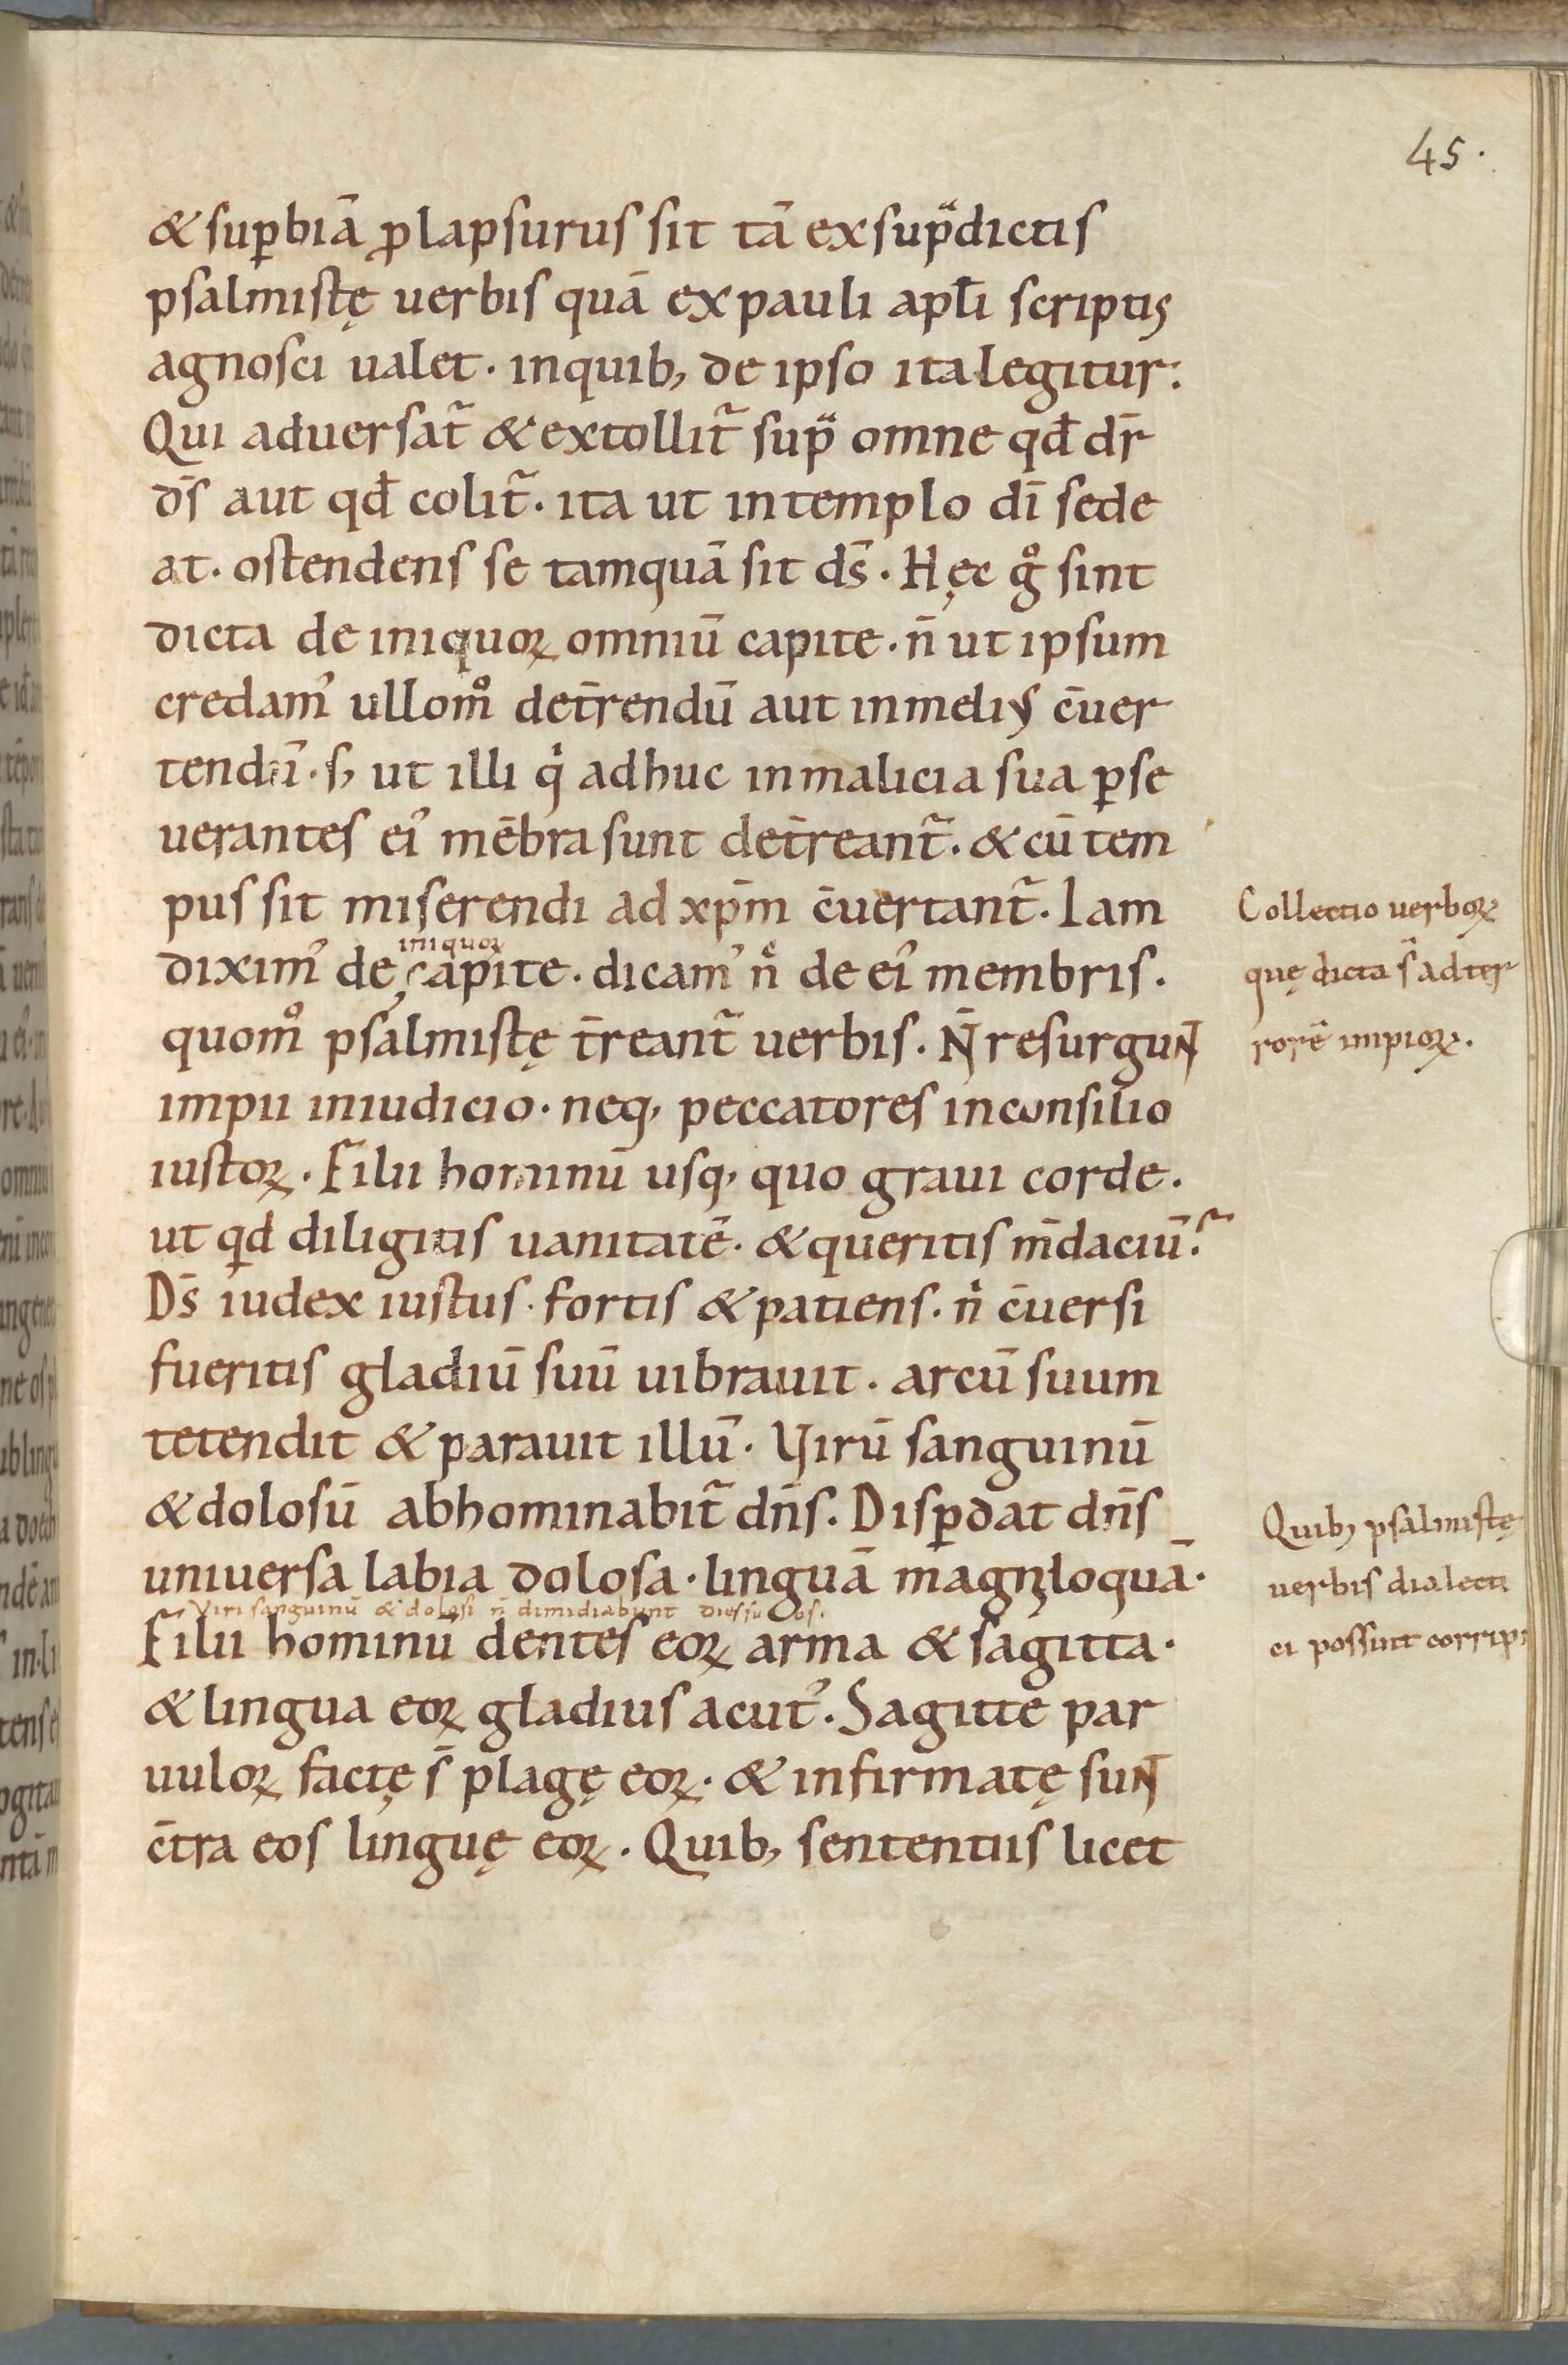 45.
& suꝑbiā ꝓlapsurus sit tā ex sup̃dictis
psalmistę uerbis quā ex pauli apłi scriptis
agnosci ualet. inquib; de ipso ita legitur:
Qui aduersat̃ & extollit̃ sup̃ omne qđ dr̄
ds̄ aut qđ colit̃. ita ut in templo dī sede
at. ostendens se tamquā sit ds̄. Hęc gͦ sint
dicta de iniquoꝝ omniū capite. n̄ ut ipsum
credam᾽ ullomͦ det̄rendū aut inmeliꝰ c̄uer
tendū. s; ut illi qͥ adhuc inmalicia sua ꝑse
uerantes ei᾽ mēbra sunt det̄reant̃. & cū tem
pus sit miserendi ad xp̄m c̄uertant̃. Iam
dixim᾽ de iniquoꝝ capite. dicam᾽ nͨ de ei᾽ membris.
quomͦ psalmistę t̄reant̃ uerbis. N̄ resurgunt
impii iniudicio. neq; peccatores inconsilio
iustoꝝ. Filii hominū usq; quo graui corde.
ut qͥd diligitis uanitatē. & queritis m̄daciū?
Ds̄ iudex iustus. fortis & patiens. nͥ c̄uersi
fueritis gladiū suū uibrauit. arcū suum
tetendit & parauit illū. Virū sanguinū
& dolosū abhominabit̃ dn̄s. Disꝑdat dn̄s
uniuersa labia dolosa. linguā magniloquā.
Viri sanguinū & dolosi n̄ dimidiabunt dies suos.
Filii hominū dentes eoꝝ arma & sagitta.
& lingua eoꝝ gladius acut᾽. Sagitte par
uuloꝝ factę s̄ plagę eoꝝ. & infirmatę sunt
c̄tra eos linguę eoꝝ. Quib; sententiis licet
Collectio uerboꝝ
quę dicta s̄ ad ter
rorē impioꝝ.
Quib; psalmistę
uerbis dialecti
ci possunt corripi